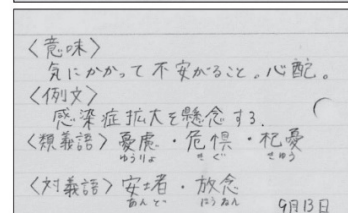 〈意味〉
気にかかって不安がること。心配。
〈例文〉
感染症拡大を懸念する.
〈類義語〉憂慮・危惧・杞憂
ゆうりょ きぐ きゆう
〈対義語〉安堵・放念
あんど ほうねん
9月13日